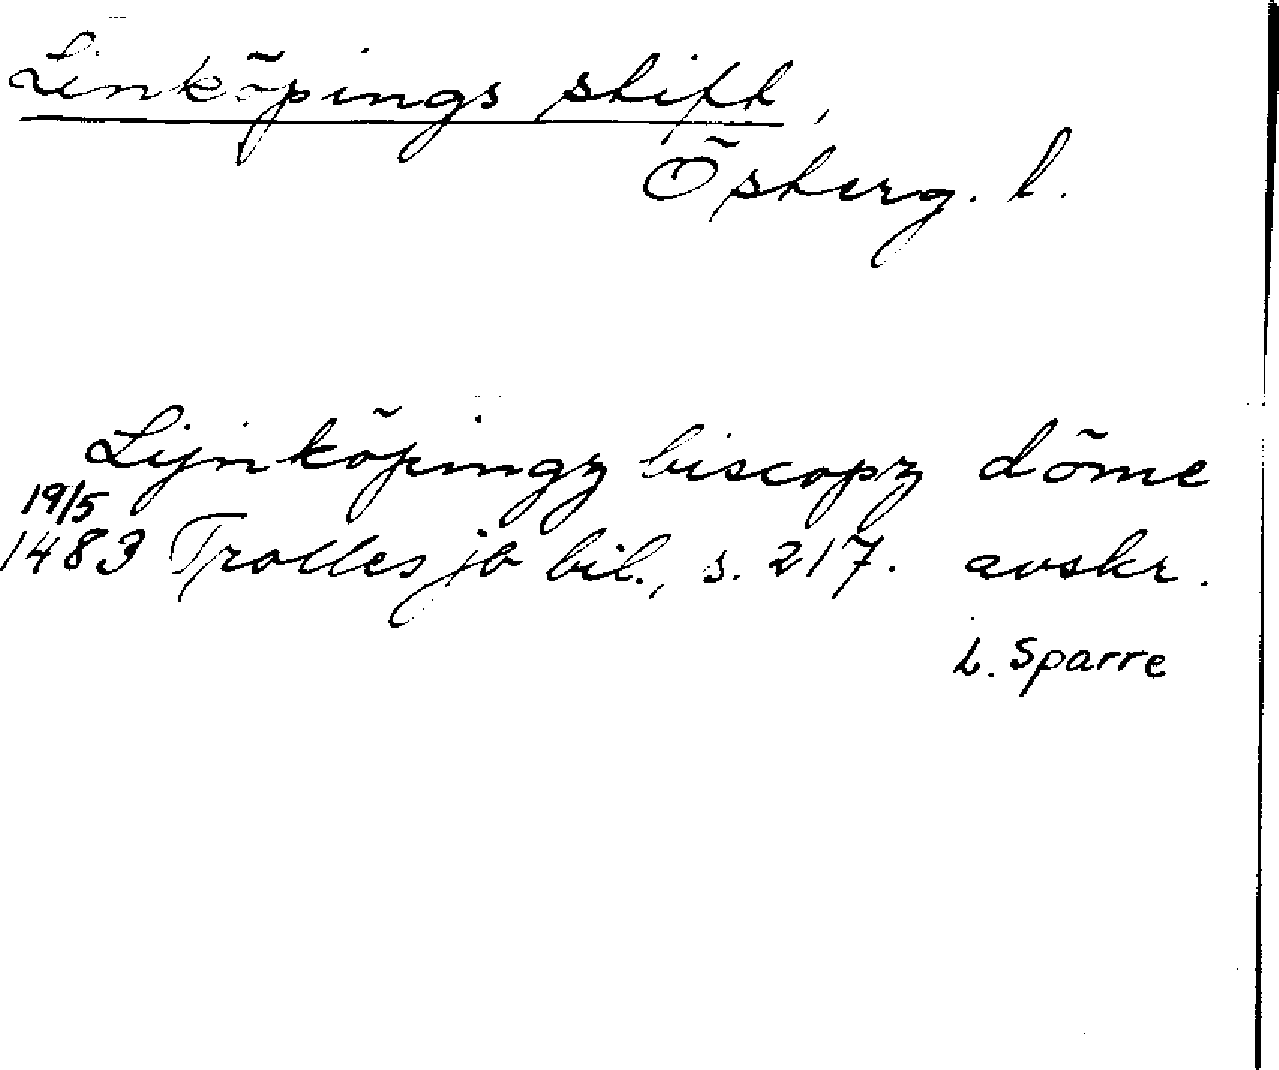 Linköpings stift,
Österg. l.
Lijnköpingz biscopz döme
19/5
1483 Trolles jb bil., s. 217. avskr.
L. Sparre